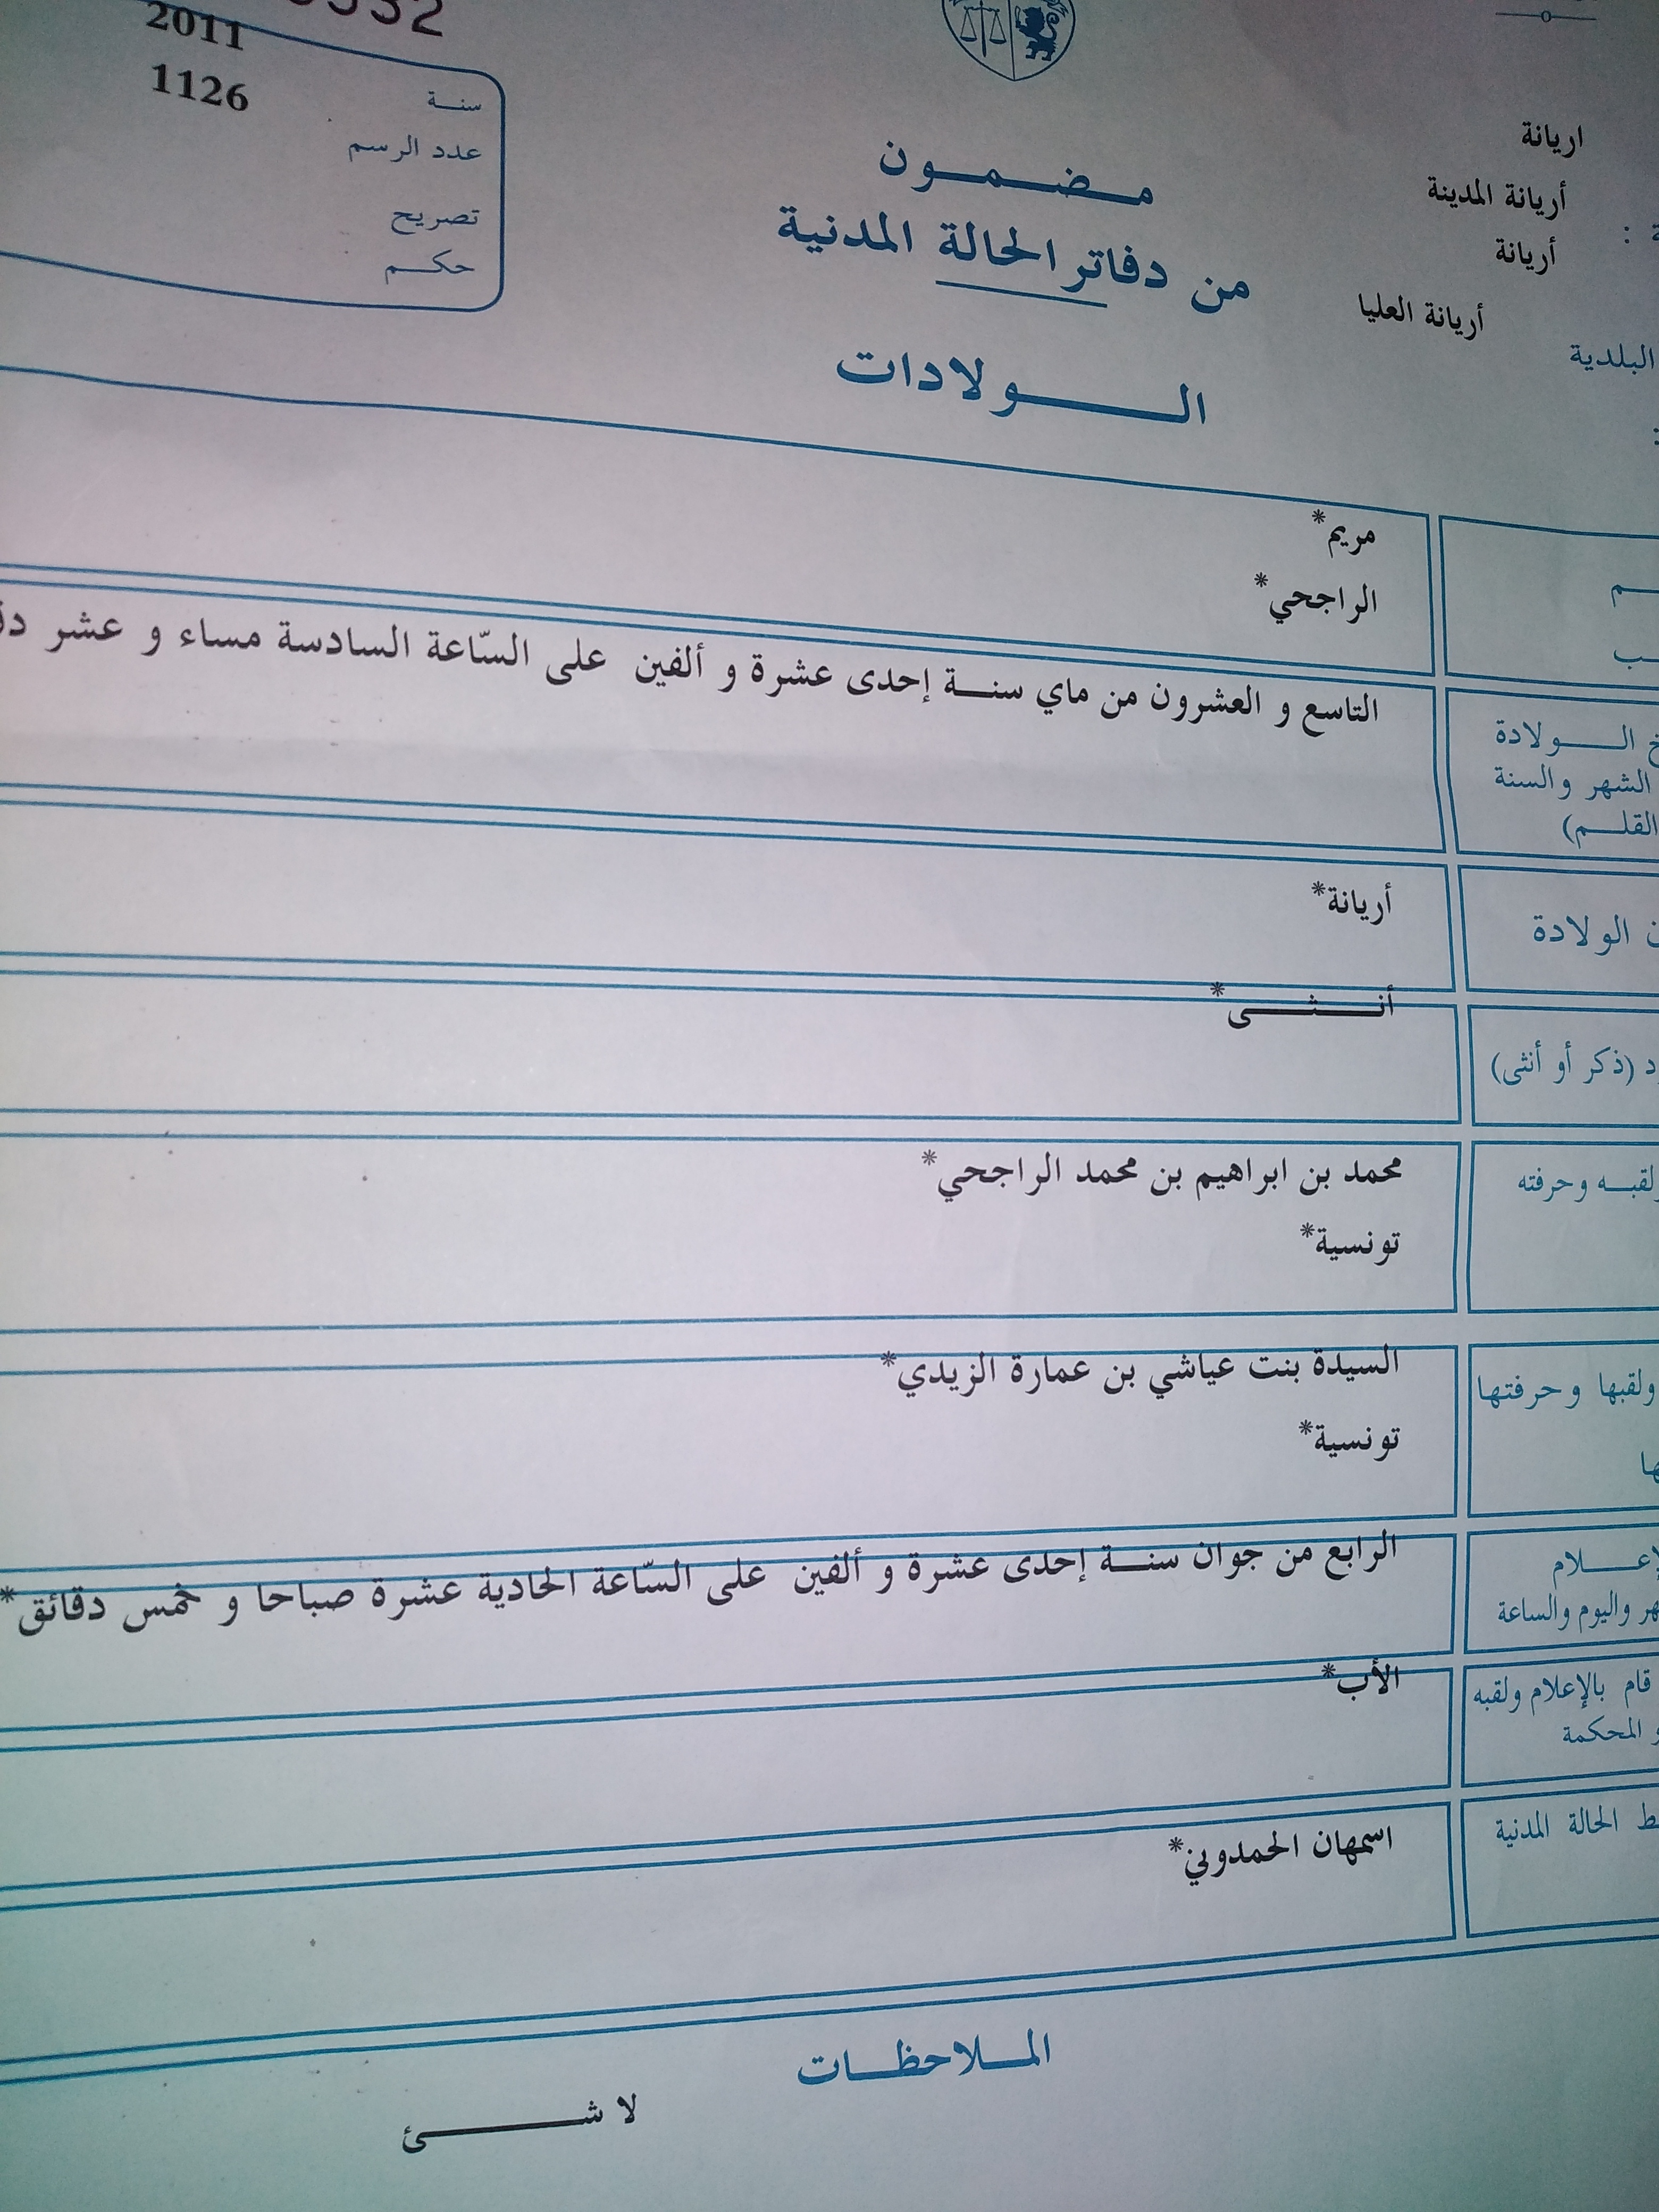 2011
1126
سنة
عدد الرسم
تصريح
حكم
اريانة
أريانة المدينة
أريانة
أريانة العليا
البلدية
مضمون
من دفاتر الحالة المدنية
الولادات
مريم*
الراجحي*
الولادة
التاسع و العشرون من ماي سنة إحدى عشرة و ألفين على السّاعة السادسة مساء و عشر
الشهر والسنة
القلم)
أريانة*
الولادة
أنثى*
(ذكر أو أنثى)
محمد بن ابراهيم بن محمد الراجحي*
ولقبه وحرفته
تونسية*
السيدة بنت عياشي بن عمارة الزيدي*
ولقبها وحرفتها
تونسية*
الرابع من جوان سنة إحدى عشرة و ألفين على السّاعة الحادية عشرة صباحا و خمس دقائق*
واليوم والساعة
الأب*
قام بالإعلام ولقبه
المحكمة
اسمهان الحمدوني*
الحالة المدنية
الملاحظات
لا شئ